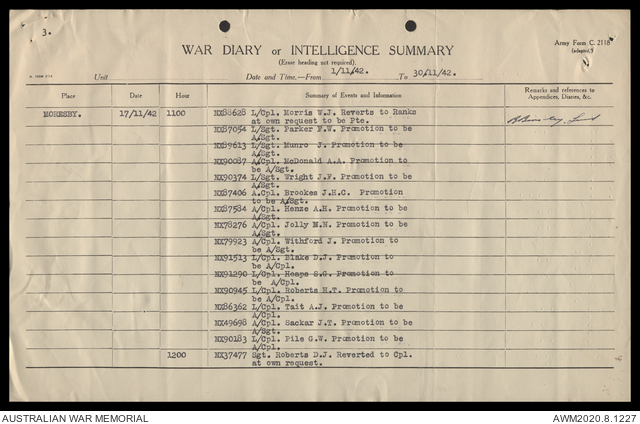 3.
WAR DIARY or INTELLIGENCE SUMMARY
(Erase heading not required).
Army Form C. 2118
(adapted.)
Unit
Date and Time.—From 1/11/42. To 30/11/42.
Place Date Hour Summary of Events and Information Remarks and references to
Appendices, Diaries, &c.
MORESBY. 17/11/42 1100 NX88628 L/Cpl. Morris W.J. Reverts to Ranks
at own request to be Pte.
NX87054 L/Sgt. Parker F.W. Promotion to be
A/Sgt.
NX89613 L/Sgt. Munro J. Promotion to be
A/Sgt.
NX90087 A/Cpl. McDonald A.A. Promotion to
be A/Sgt.
NX90374 L/Sgt. Wright J.F. Promotion to be
A/Sgt.
NX87406 A.Cpl. Brookes J.H.C. Promotion
to be A/Sgt.
NX87584 A/Cpl. Henze A.H. Promotion to be
A/Sgt.
NX78276 A/Cpl. Jolly M.N. Promotion to be
A/Sgt.
NX79923 A/Cpl. Withford J. Promotion to
be A/Sgt.
NX91513 L/Cpl. Blake D.J. Promotion to
be A/Cpl.
NX91290 L/Cpl. Heaps S.G. Promotion to
be A/Cpl.
NX90945 L/Cpl. Roberts H.T. Promotion to
be A/Cpl.
NX86362 L/Cpl. Tait A.J. Promotion to be
A/Cpl.
NX49698 A/Cpl. Sackar J.T. Promotion to be
A/Sgt.
NX90183 L/Cpl. Pile G.W. Promotion to be
A/Cpl.
1200 NX37477 Sgt. Roberts D.J. Reverted to Cpl.
at own request.
AUSTRALIAN WAR MEMORIAL AWM2020.8.1227